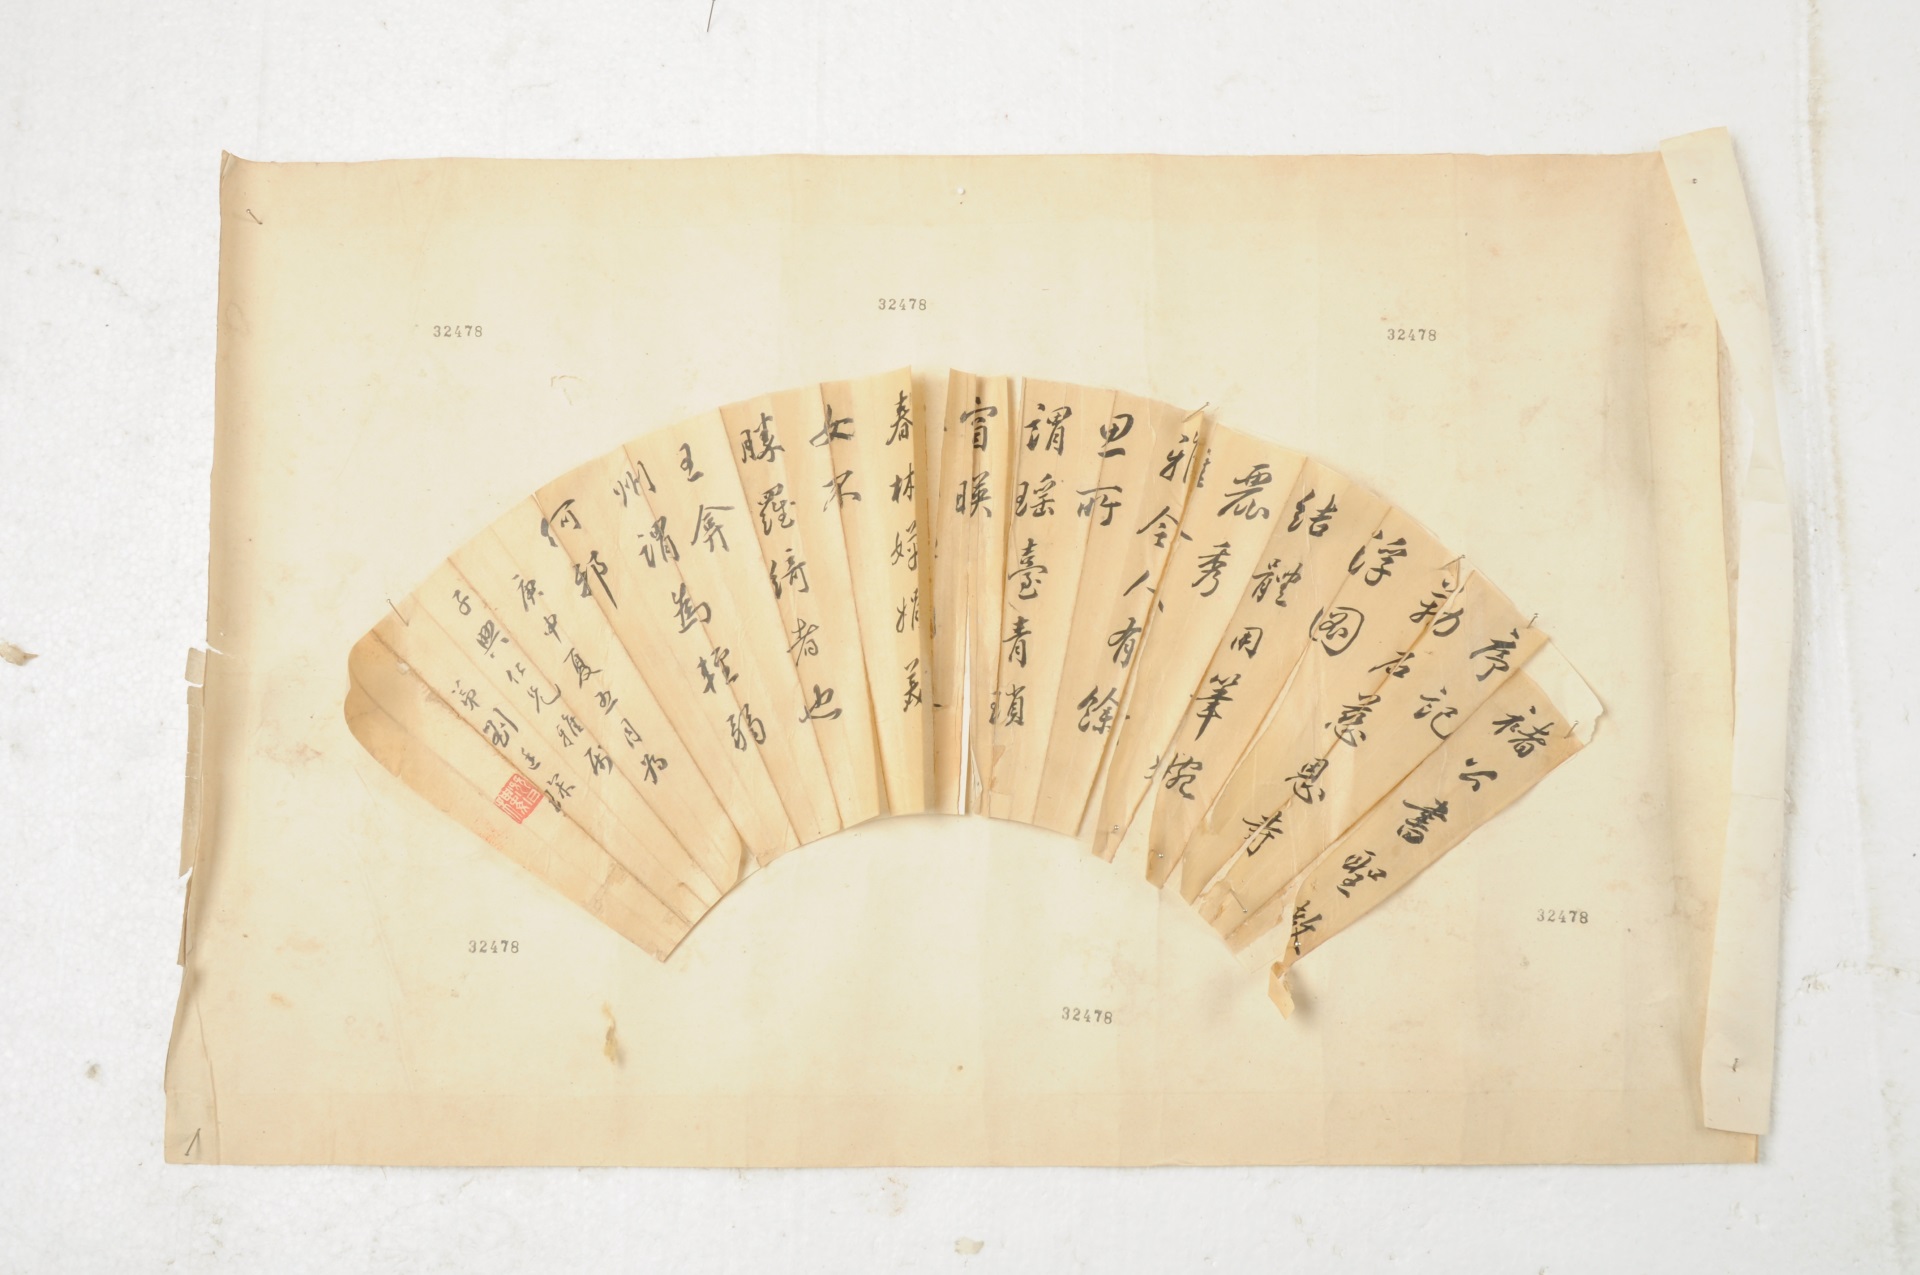 32478
32478
32478
褚公書聖教
序記
勒石慈恩寺
浮圖
結體用筆婉
麗秀
雅令人有餘
思所
謂瑤臺青瑣
窅映
春林嬋娟美
女不
勝羅綺者也
王弇
州謂為輕弱
何邪
庚申夏五月為
子興仁兄雅屬
弟劉廷琛
32478
32478
32478